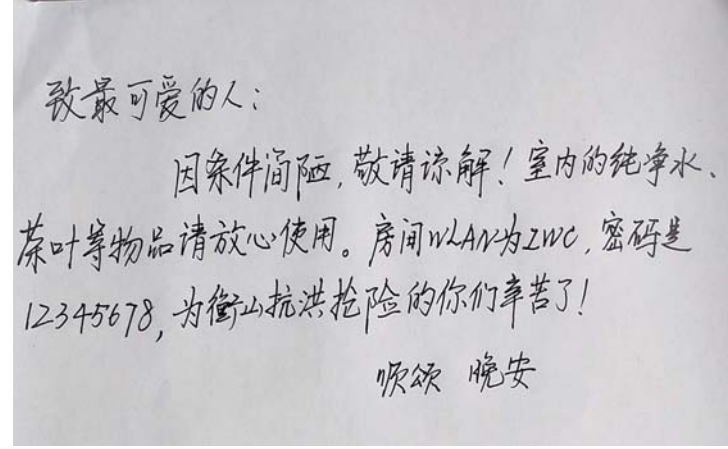 致最可爱的人：
因条件简陋，敬请谅解！室内的纯净水、
茶叶等物品请放心使用。房间WLAN为ZWC，密码是
12345678，为衡山抗洪抢险的你们辛苦了！
顺颂 晚安